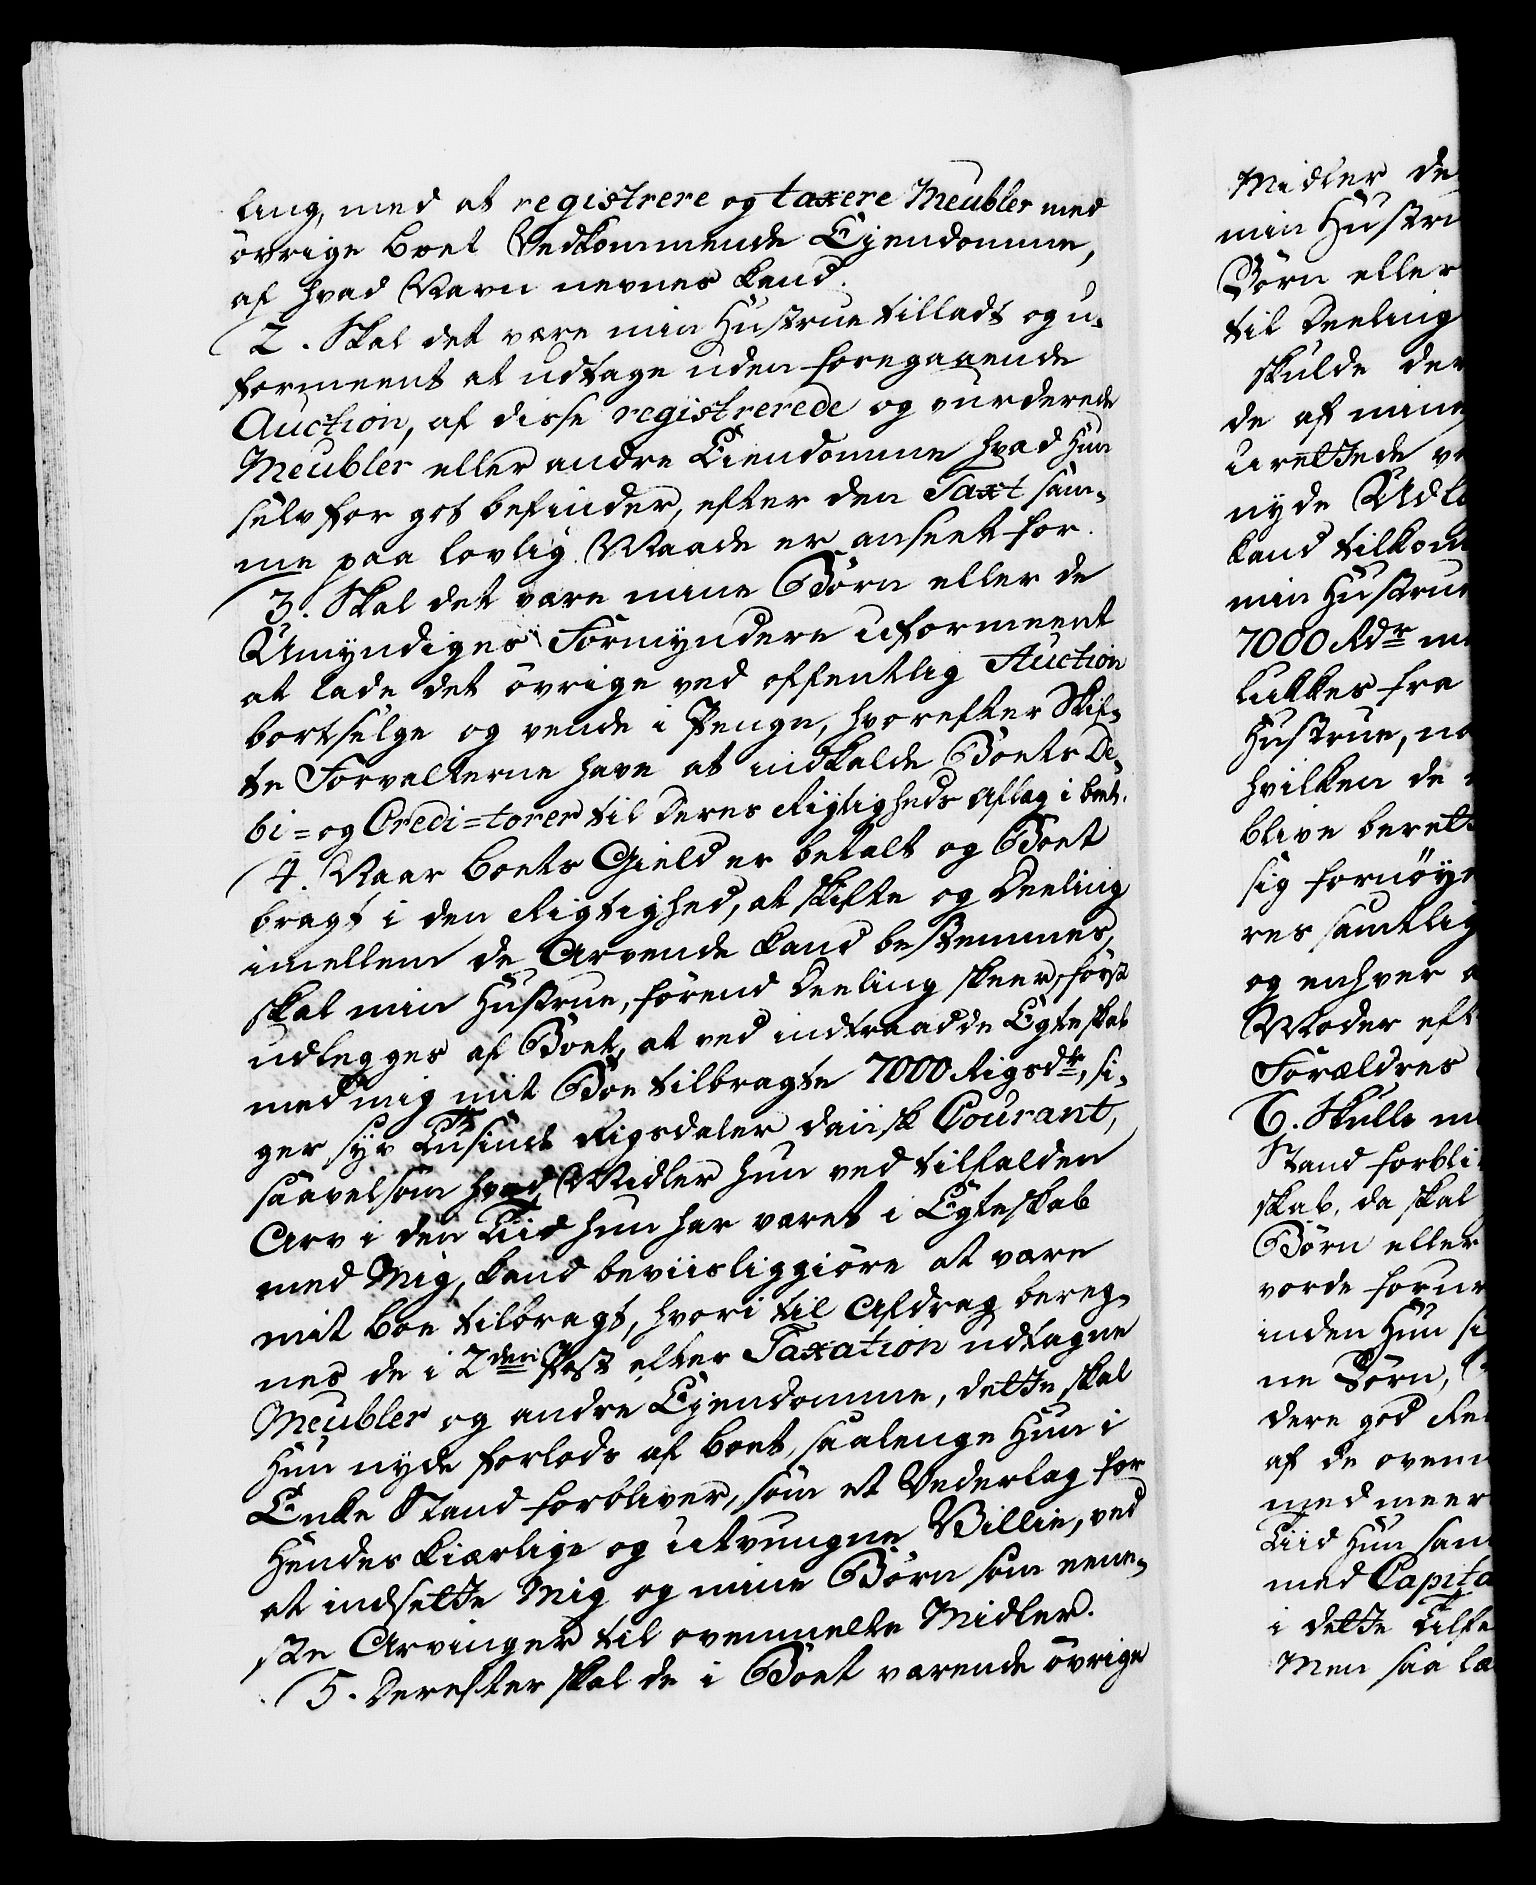 ling, med at registrere og taxere Meubler med
övrige boet Vedkommende Ejendomme,
af hvad Navn nevnes kand.
2. Skal det være min Hustrue tilladt og u-
formeent at udtage uden foregaaende
Auction, af disse registrerede og vurderede
Meubler eller andre Eiendomme hvad Hun
selv for got befinder, efter den Taxt sam-
me paa lovlig Maade er anseet for.
3. Skal det være mine Börn eller de
Umyndiges Formyndere uformeent
at lade det övrige ved offentlig Auction
bortselge og vende i Penge, hvorefter Skif-
te Forvalterne have at indkalde Boets De-
bi= og Credi=torer til deres Rigtigheds aflæg i boet.
4. Naar boets Gield er betalt og Boet
bragt i den Rigtighed, at skifte og Deeling
imellem de Arvende kand bestemmes,
skal min Hustrue, förend Deeling skeer, först
udlegges af Boet, at ved indtraadde Egteskab
med mig mit Boe tilbragte 7000 Rigsdr, si-
ger syv Tusinde Rigsdaler dansk Courant,
saavelsom hvad Midler hun ved tilfalden
Arv i den Tiid hun har været i Egteskab
med Mig, kand beviisliggiöre at være
mit boe tilbragt, hvori til Afdrag bereg-
nes de i 2den Post efter Taxation udtagne
Meubler og andre Ejendomme, dette skal
Hun nyde forlods af boet, saalenge Hun i
Enke Stand forbliver, som et Vederlag for
Hendes kiærlige og utvungne Villie, ved
at indsette Mig og mine Börn som eene-
ste Arvinger til ovenmelte Midler.
5. Derefter skal de i Boet værende övrige
Midler de
min Hustru
Börn eller
til Deeling
skulde der
de af mine
urettede
nyde
kand tilkom
min Hustrue
7000 Rdr
lukkes fra
Hustrue,
hvilken de
blive berett
sig fornöye
res samtlig
og enhver
Moder eft
Forældres
6. Skulle
Stand forbli
skab, da skal
Börn eller
vorde forur
inden Hun
ne Börn,
dere god
af de ovenm
med meer
Tiid Hun sam
med Capita
i dette Tilfe
Men saa